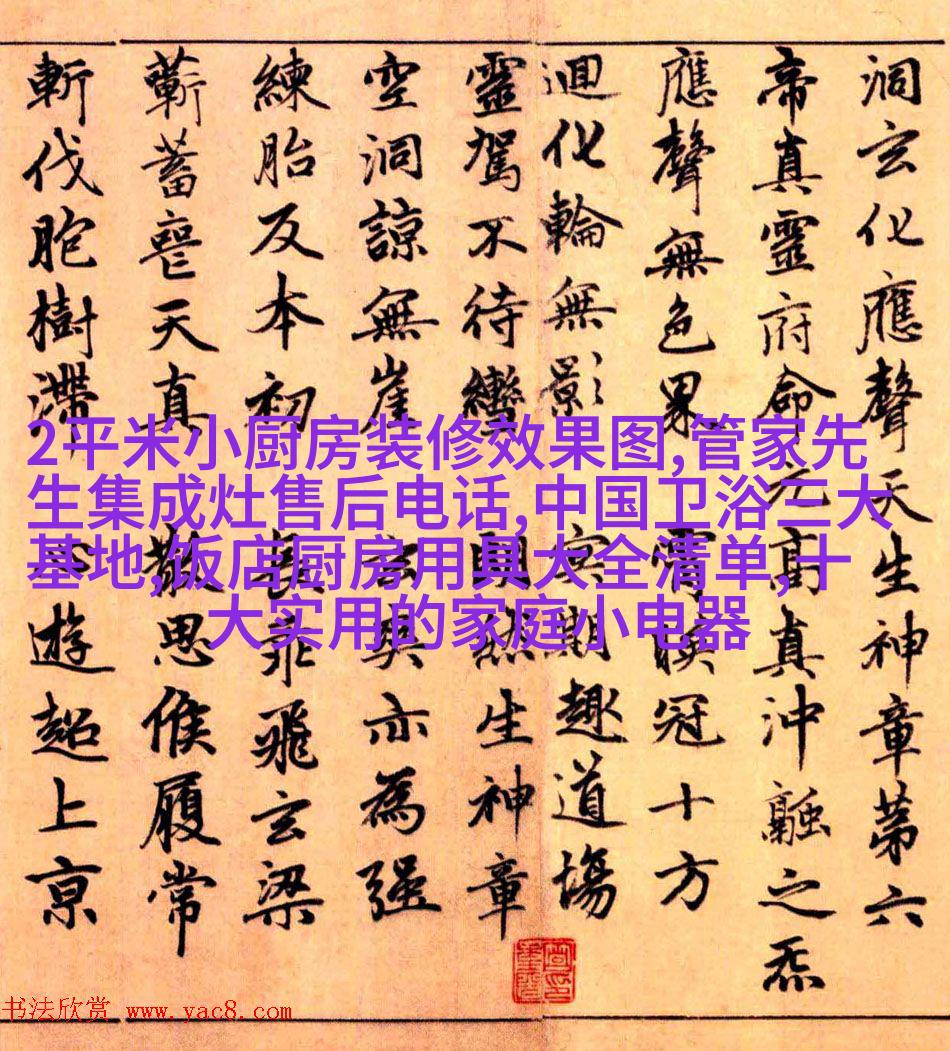 洞玄化應聲天生神章第六
帝真靈府命元高真沖融之炁
應聲無色界霄映冠十方
迴化輪無影冥期趣道場
靈駕不待轡朗然生神章
空洞諒無崖玄爽亦為强
練胎反本初長乖飛玄梁
蘄蓄喪天真散思候履常
斬伐胞樹滯遊超上京
2平米小厨房装修效果图,管家先
生集成灶售后电话,中国卫浴三大
基地,饭店厨房用具大全清单,十
大实用的家庭小电器
书法欣赏 www.yac8.com